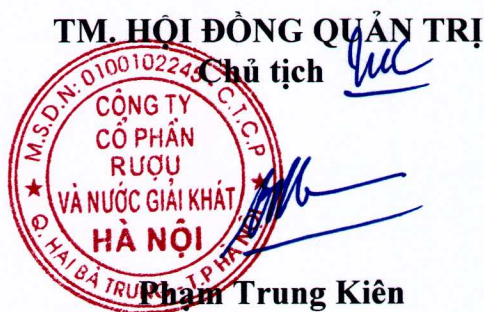 TM. HỘI ĐỒNG QUẢN TRỊ
Chủ tịch
M.S.D.N: 0100102245 - C.T.C.P
CÔNG TY
CỔ PHẦN
RƯỢU
VÀ NƯỚC GIẢI KHÁT
HÀ NỘI
Q. HAI BÀ TRƯNG - T.P HÀ NỘI
Phạm Trung Kiên